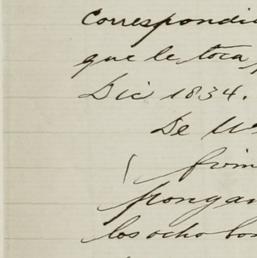 Correspondi
que le toca,
Dic 1834.
De
pongan
los ocho bon